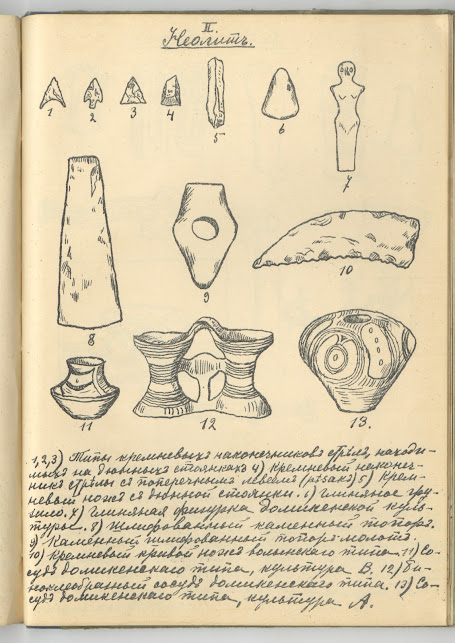 II.
Неолитъ.
1 2 3 4 5 6 7
8 9 10
11 12 13.
1,2,3) Типы кремневыхъ наконечниковъ стрѣлъ, находи-
мыхъ на дюнныхъ стоянкахъ 4) Кремневый наконеч-
никъ стрѣлы съ поперечнымъ лезвеемъ (рѣзакъ) 5) Крем-
невый ножъ съ дюнной стоянки. 6) Глиняное гру-
зило. 7) Глиняная фигурка домикенской куль-
туры. 8) Шлифованный каменный топоръ.
9) Каменный шлифованный топоръ-молотъ.
10) Кремневый кривой ножъ волынскаго типа. 11) Со-
судъ домикенскаго типа, культура В. 12) Би-
ноклеобразный сосудъ домикенскаго типа. 13) Со-
судъ домикенскаго типа, культура А.